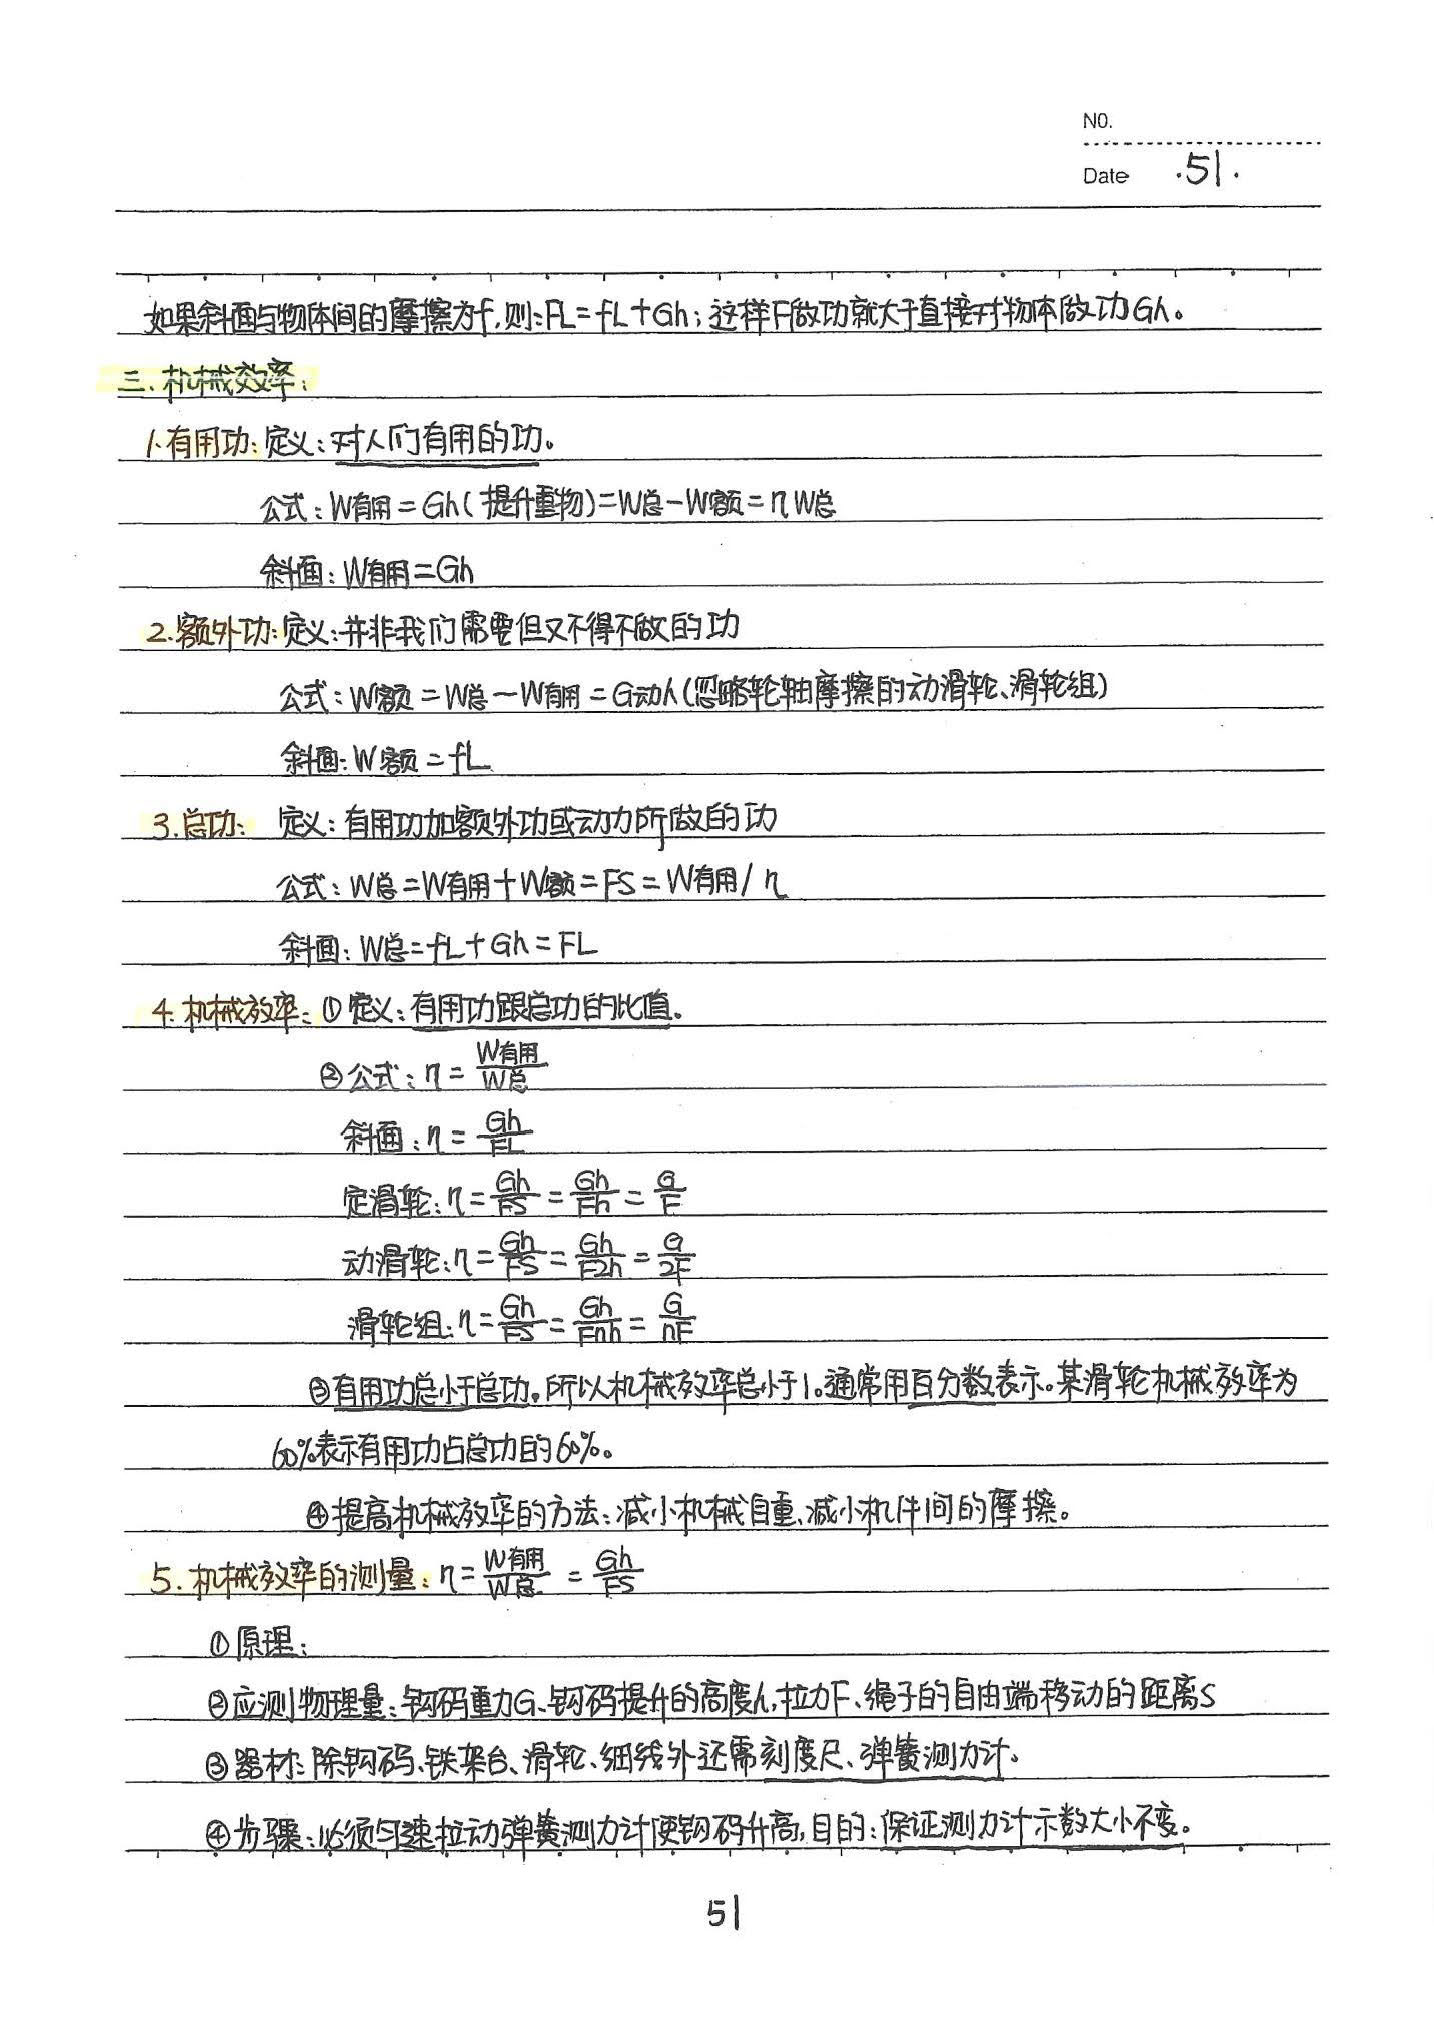 NO.
Date .51.
如果斜面与物体间的摩擦为f,则:FL=fL+Gh;这样F做功就大于直接对物体做功Gh。
三.机械效率:
1.有用功:定义:对人们有用的功。
公式:W有用=Gh(提升重物)=W总-W额=ηW总
斜面:W有用=Gh
2.额外功:定义:并非我们需要但又不得不做的功
公式:W额=W总-W有用=G动h(忽略轮轴摩擦的动滑轮、滑轮组)
斜面:W额=fL
3.总功: 定义:有用功加额外功或动力所做的功
公式:W总=W有用+W额=FS=W有用/η
斜面:W总=fL+Gh=FL
4.机械效率:①定义:有用功跟总功的比值。
②公式:η=W有用/W总
斜面:η=Gh/FL
定滑轮:η=Gh/FS=Gh/Fh=G/F
动滑轮:η=Gh/FS=Gh/F2h=G/2F
滑轮组:η=Gh/FS=Gh/Fnh=G/nF
③有用功总小于总功,所以机械效率总小于1。通常用百分数表示。某滑轮机械效率为
60%表示有用功占总功的60%。
④提高机械效率的方法:减小机械自重、减小机件间的摩擦。
5.机械效率的测量:η=W有用/W总=Gh/FS
①原理:
②应测物理量:钩码重力G、钩码提升的高度h,拉力F、绳子的自由端移动的距离S
③器材:除钩码、铁架台、滑轮、细线外还需刻度尺、弹簧测力计。
④步骤:必须匀速拉动弹簧测力计使钩码升高,目的:保证测力计示数大小不变。
51